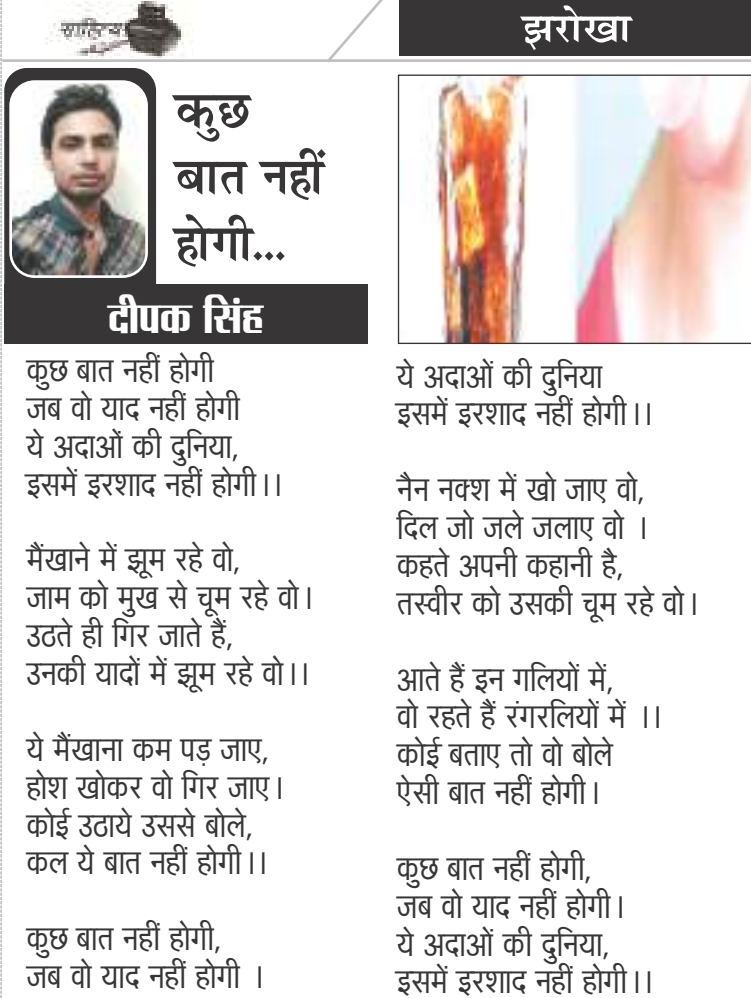 साहित्य
झरोखा
कुछ
बात नहीं
होगी...
दीपक सिंह
कुछ बात नहीं होगी
जब वो याद नहीं होगी
ये अदाओं की दुनिया,
इसमें इरशाद नहीं होगी।।
मैंखाने में झूम रहे वो,
जाम को मुख से चूम रहे वो।
उठते ही गिर जाते हैं,
उनकी यादों में झूम रहे वो।।
ये मैंखाना कम पड़ जाए,
होश खोकर वो गिर जाए।
कोई उठाये उससे बोले,
कल ये बात नहीं होगी।।
कुछ बात नहीं होगी,
जब वो याद नहीं होगी ।
ये अदाओं की दुनिया
इसमें इरशाद नहीं होगी।।
नैन नक्श में खो जाए वो,
दिल जो जले जलाए वो ।
कहते अपनी कहानी है,
तस्वीर को उसकी चूम रहे वो।
आते हैं इन गलियों में,
वो रहते हैं रंगरलियों में ।।
कोई बताए तो वो बोले
ऐसी बात नहीं होगी।
कुछ बात नहीं होगी,
जब वो याद नहीं होगी।
ये अदाओं की दुनिया,
इसमें इरशाद नहीं होगी।।